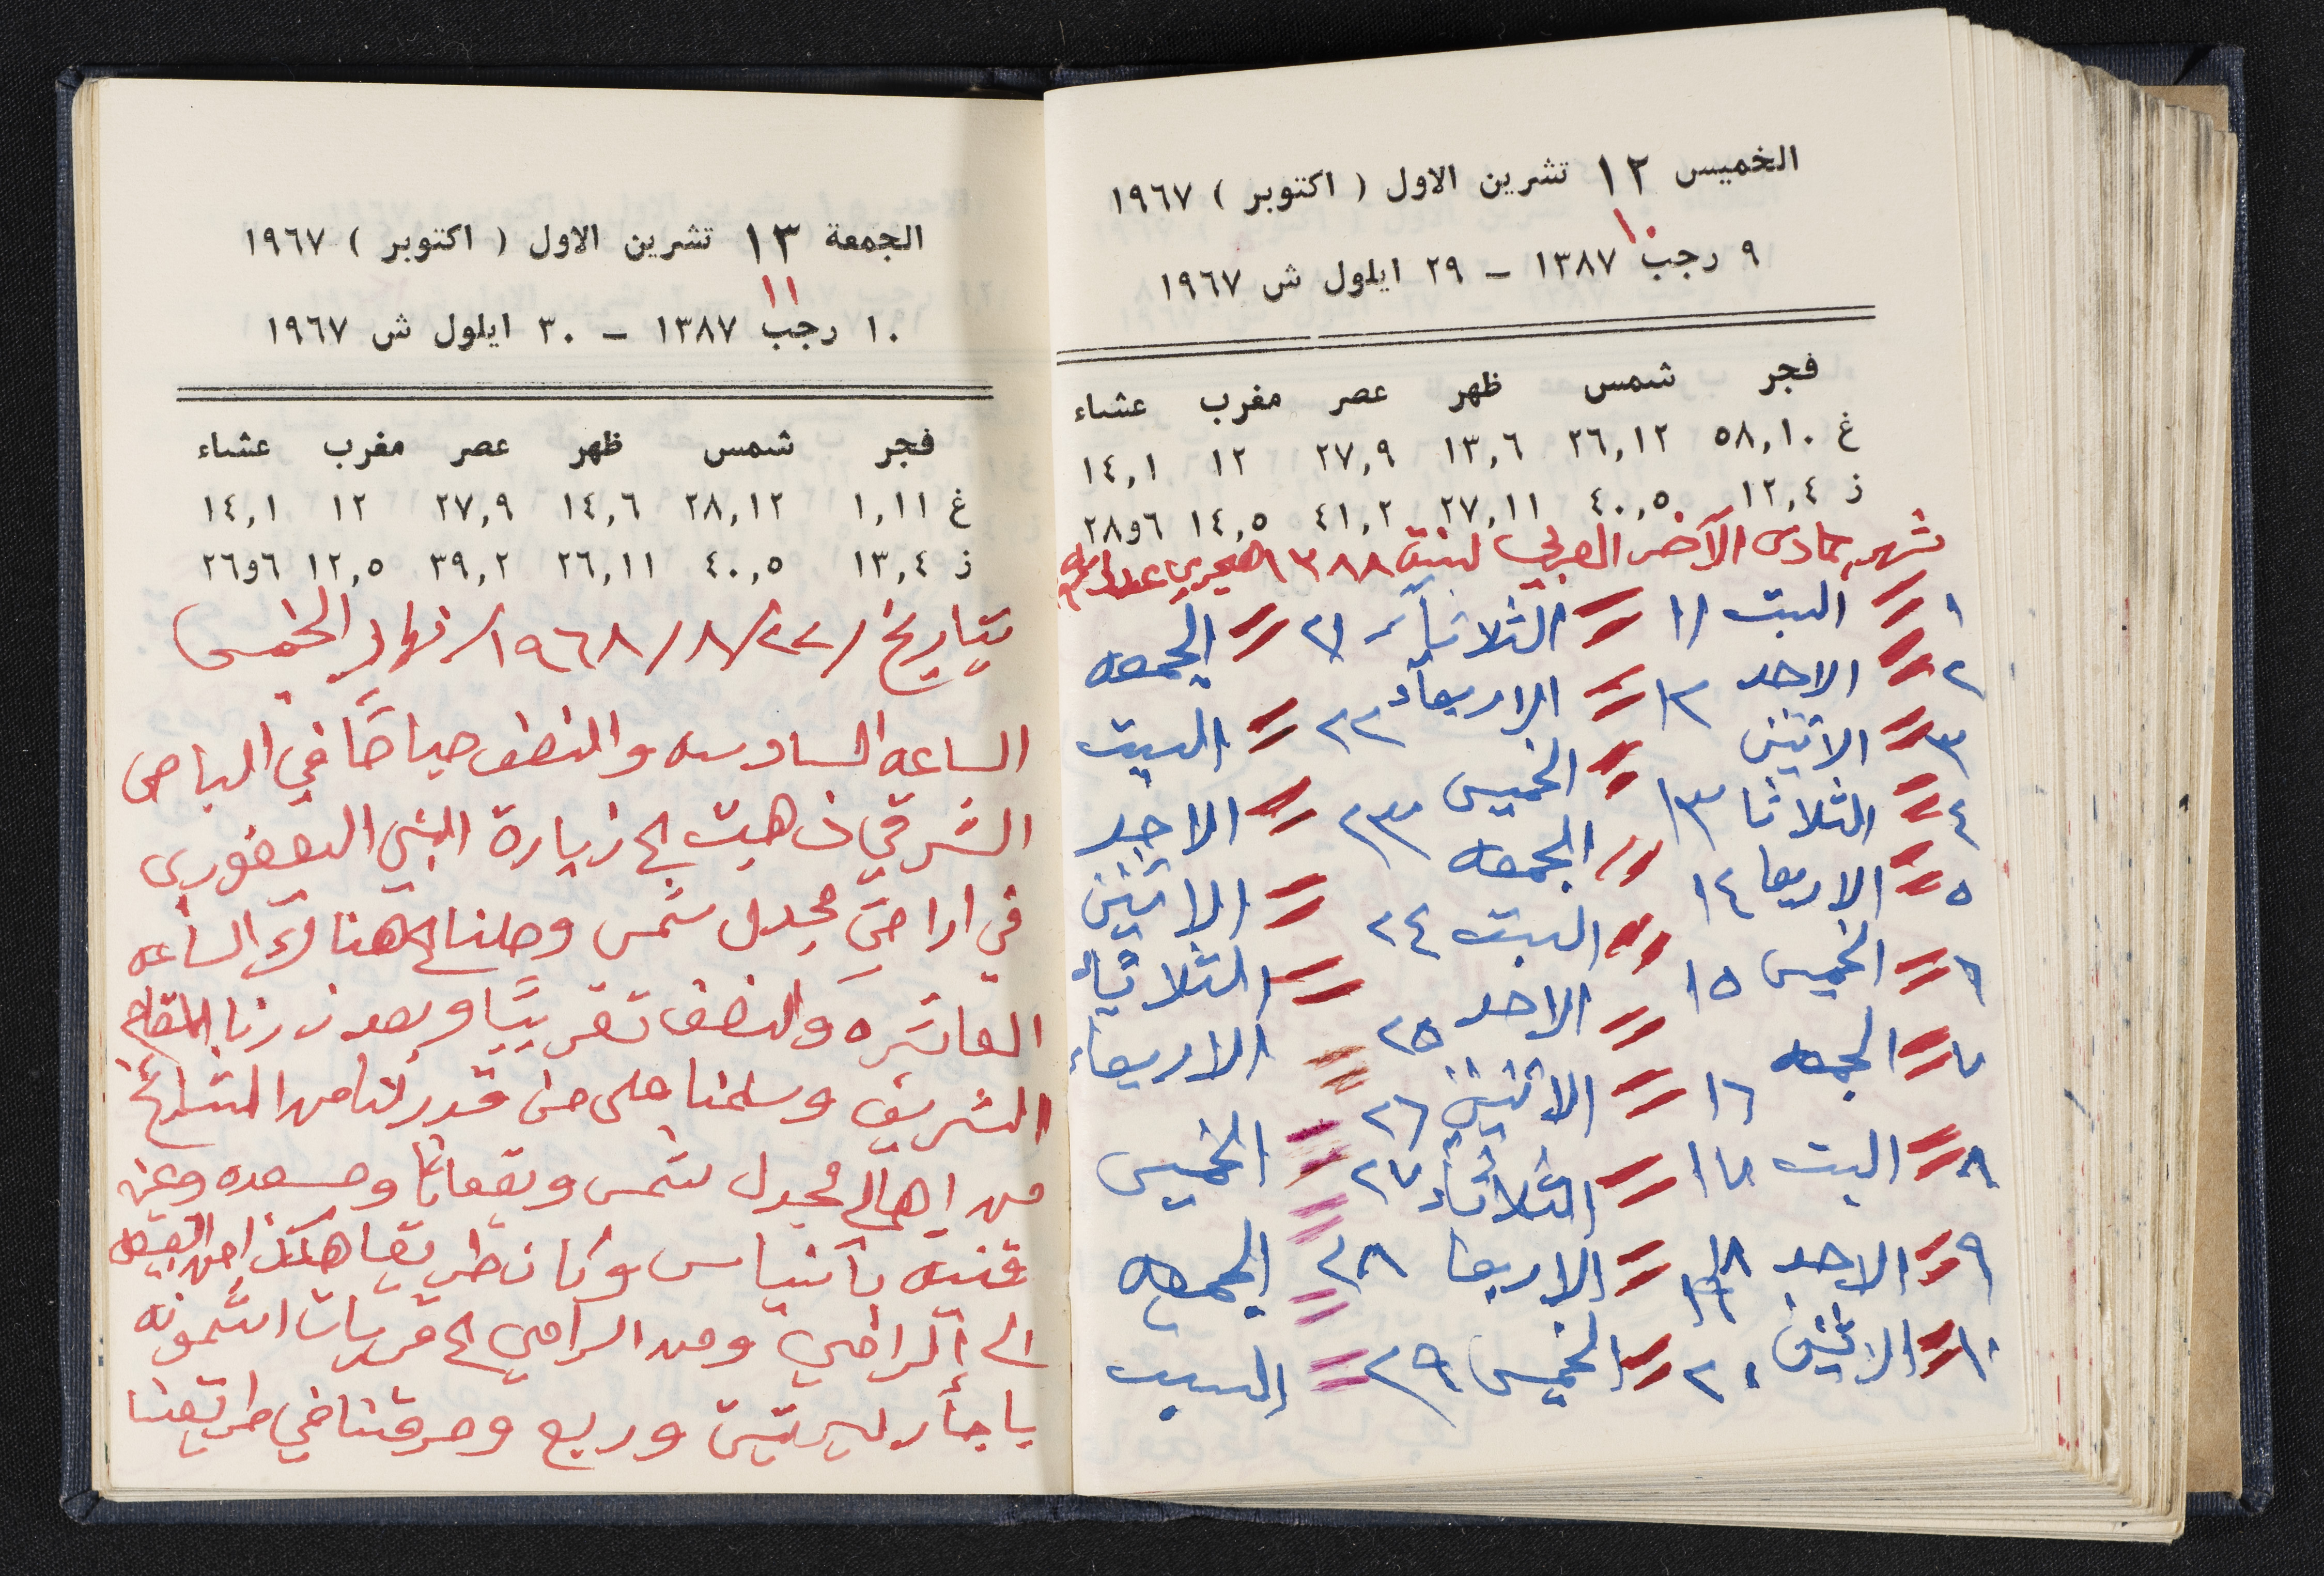 الخميس ١٢ تشرين الاول ( اكتوبر ) ١٩٦٧
١٠
٩ رجب ١٣٨٧ – ٢٩ ايلول ش ١٩٦٧
فجر شمس ظهر عصر مغرب عشاء
غ ٥٨,١٠ ٢٦,١٢ ١٣,٦ ٢٧,٩ ١٢ ١٤,١
ز ١٢,٤ ٤٠,٥ ٢٧,١١ ٤١,٢ ١٤,٥ ٦و٢٨
شهر جمادى الآخر العربي لسنة ١٣٨٨ هجري
١ = السبت ١١ = الثلاثاء ٢١ = الجمعه
٢ = الاحد ١٢ = الاربعاء ٢٢ = السبت
٣ = الاثنين ١٣ = الخميس ٢٣ = الاحد
٤ = الثلاثا ١٤ = الجمعه ٢٤ = الاثنين
٥ = الاربعا ١٥ = السبت ٢٥ = الثلاثاء
٦ = الخميس ١٦ = الاحد ٢٦ = الاربعاء
٧ = الجمعه ١٧ = الاثنين ٢٧ = الخميس
٨ = السبت ١٨ = الثلاثاء ٢٨ = الجمعه
٩ = الاحد ١٩ = الاربعا ٢٩ = السبت
١٠ = الاثنين ٢٠ = الخميس
الجمعة ١٣ تشرين الاول ( اكتوبر ) ١٩٦٧
١١
١٠ رجب ١٣٨٧ – ٣٠ ايلول ش ١٩٦٧
فجر شمس ظهر عصر مغرب عشاء
غ ١,١١ ٢٨,١٢ ١٤,٦ ٢٧,٩ ١٢ ١٤,١
ز ١٣,٤ ٤٠,٥ ٢٦,١١ ٣٩,٢ ١٢,٥ ٦و٢٦
بتاريخ /٢٢/٨/١٩٦٨/ نهار الخميس
الساعه السادسه والنصف صباحًا في الباص
الشرقي ذهبت الى زيارة النبي اليعفوري
في اراضي مجدل شمس وصلنا الى هناك الساعه
العاشره والنصف تقريبًا وبعد زرنا المقام
الشريف وسلمنا على من قدرنا من المشايخ
من اهالي مجدل شمس وبقعاثا ومسعده وعين
قنيه بانياس وكان طريقنا هكذا من
الى الرامي ومن الرامي الى قريات اشمونه
باجار ليرتين وربع ومرقنا في طريقنا